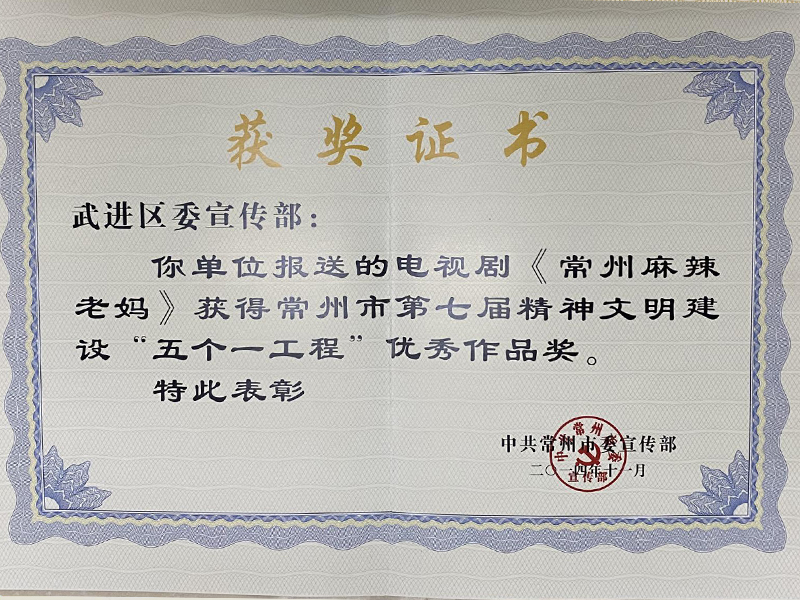 获奖证书
武进区委宣传部：
你单位报送的电视剧《常州麻辣
老妈》获得常州市第七届精神文明建
设“五个一工程”优秀作品奖。
特此表彰
中共常州市委宣传部
二〇一四年十一月
中共常州市委
宣传部